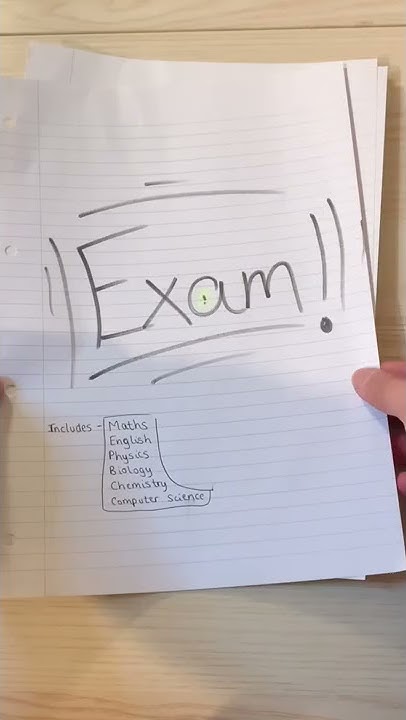 Exam!
!
Includes - Maths
English
Physics
Biology
Chemistry
Computer Science